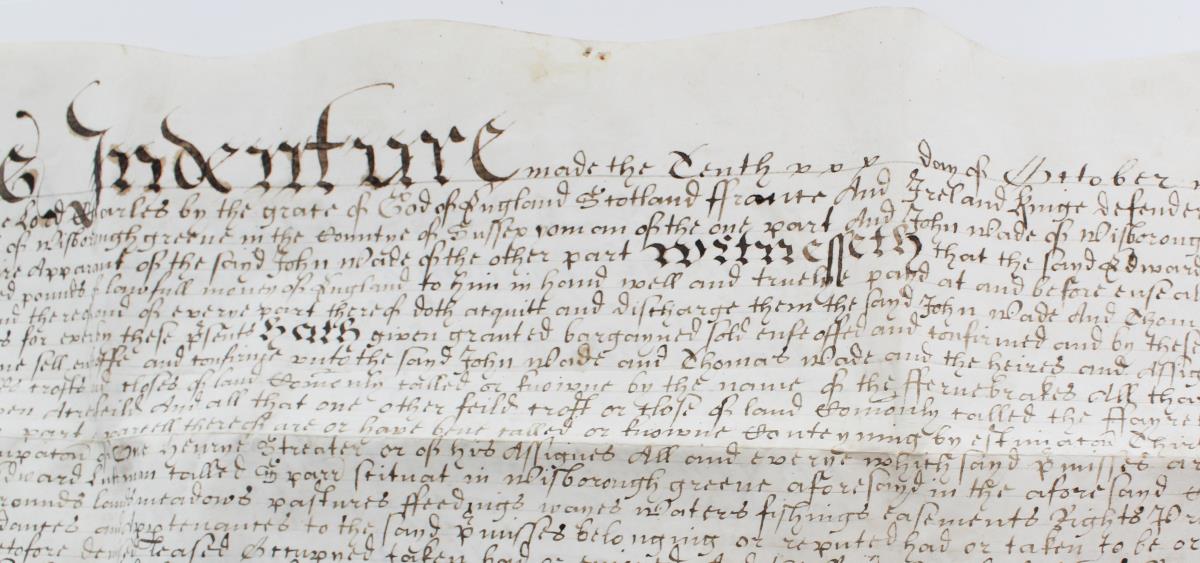 s Indenture made the Tenth day of October
e Lord Charles by the grace of God of England Scotland ffrance And Ireland Kinge defende
of Wisborough greene in the Countye of Sussex yoman of the one part And John Wade of Wisboroug
re Apparant of the sayd John Wade of the other part Witnesseth that the sayd Edward
ed pounds of lawfull money of England to him in hand well and truelye payd at and before ensea
nd thereof and of everye part thereof doth acquitt and discharge them the sayd John Wade And Thom
s for every these psents Hath given granted bargayned sold enfeoffed and confirmed and by these
ne sell enffe and confirme unto the sayd John Wade and Thomas Wade and the heires and Assig
crofts closes of land Comonly called or knowne by the name of the ffernebrakes All tha
pen And all that one other feild croft or close of land Comonly called the ffayre
part parcell thereof are or have bine called or knowne Conteyning by estimacon Thir
upacon of One Henrye Streater or of his Assignes All and everye which sayd pmisses ar
dward called Sparr scituat in Wisborough greene aforesayd in the aforesayd C
rounds lands meadows pastures ffeedings wayes Waters fishings easements Rights
dances and Apptenances to the sayd pmisses belonging or reputed had or taken to be or
etofore leased Occupyed taken had or